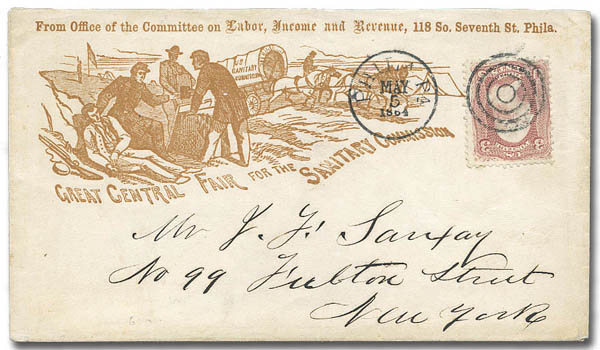 From Office of the Committee on Labor, Income and Revenue, 118 So. Seventh St. Phila.
U.S.
SANITARY
COMMISSION
PHILA PA.
MAY
5
1864
GREAT CENTRAL FAIR FOR THE SANITARY COMMISSION
Mr J. F. Sanxay
No 99 Fulton Street
New York